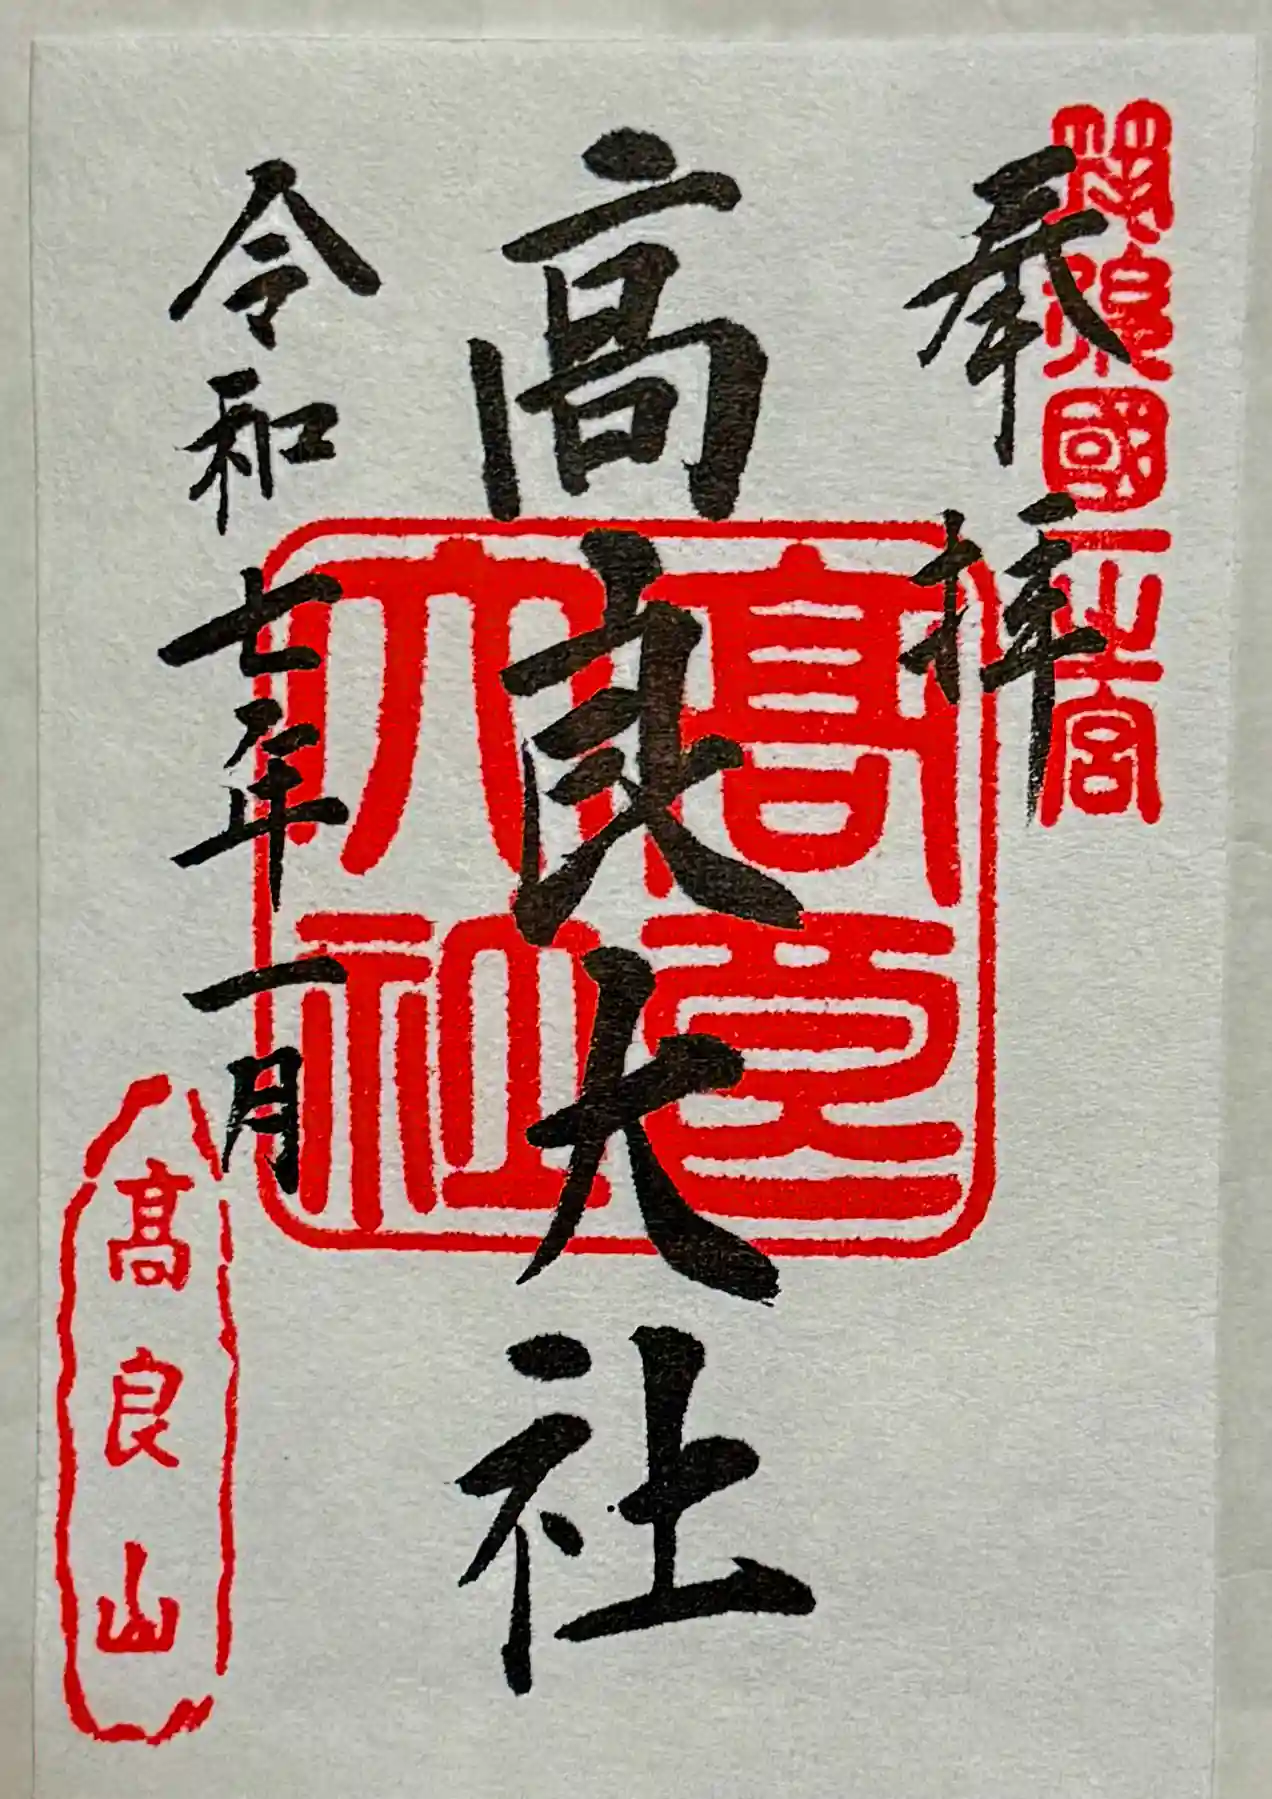 筑後國一之宮
奉拝
高良大社
高良大社
令和七年一月
高良山